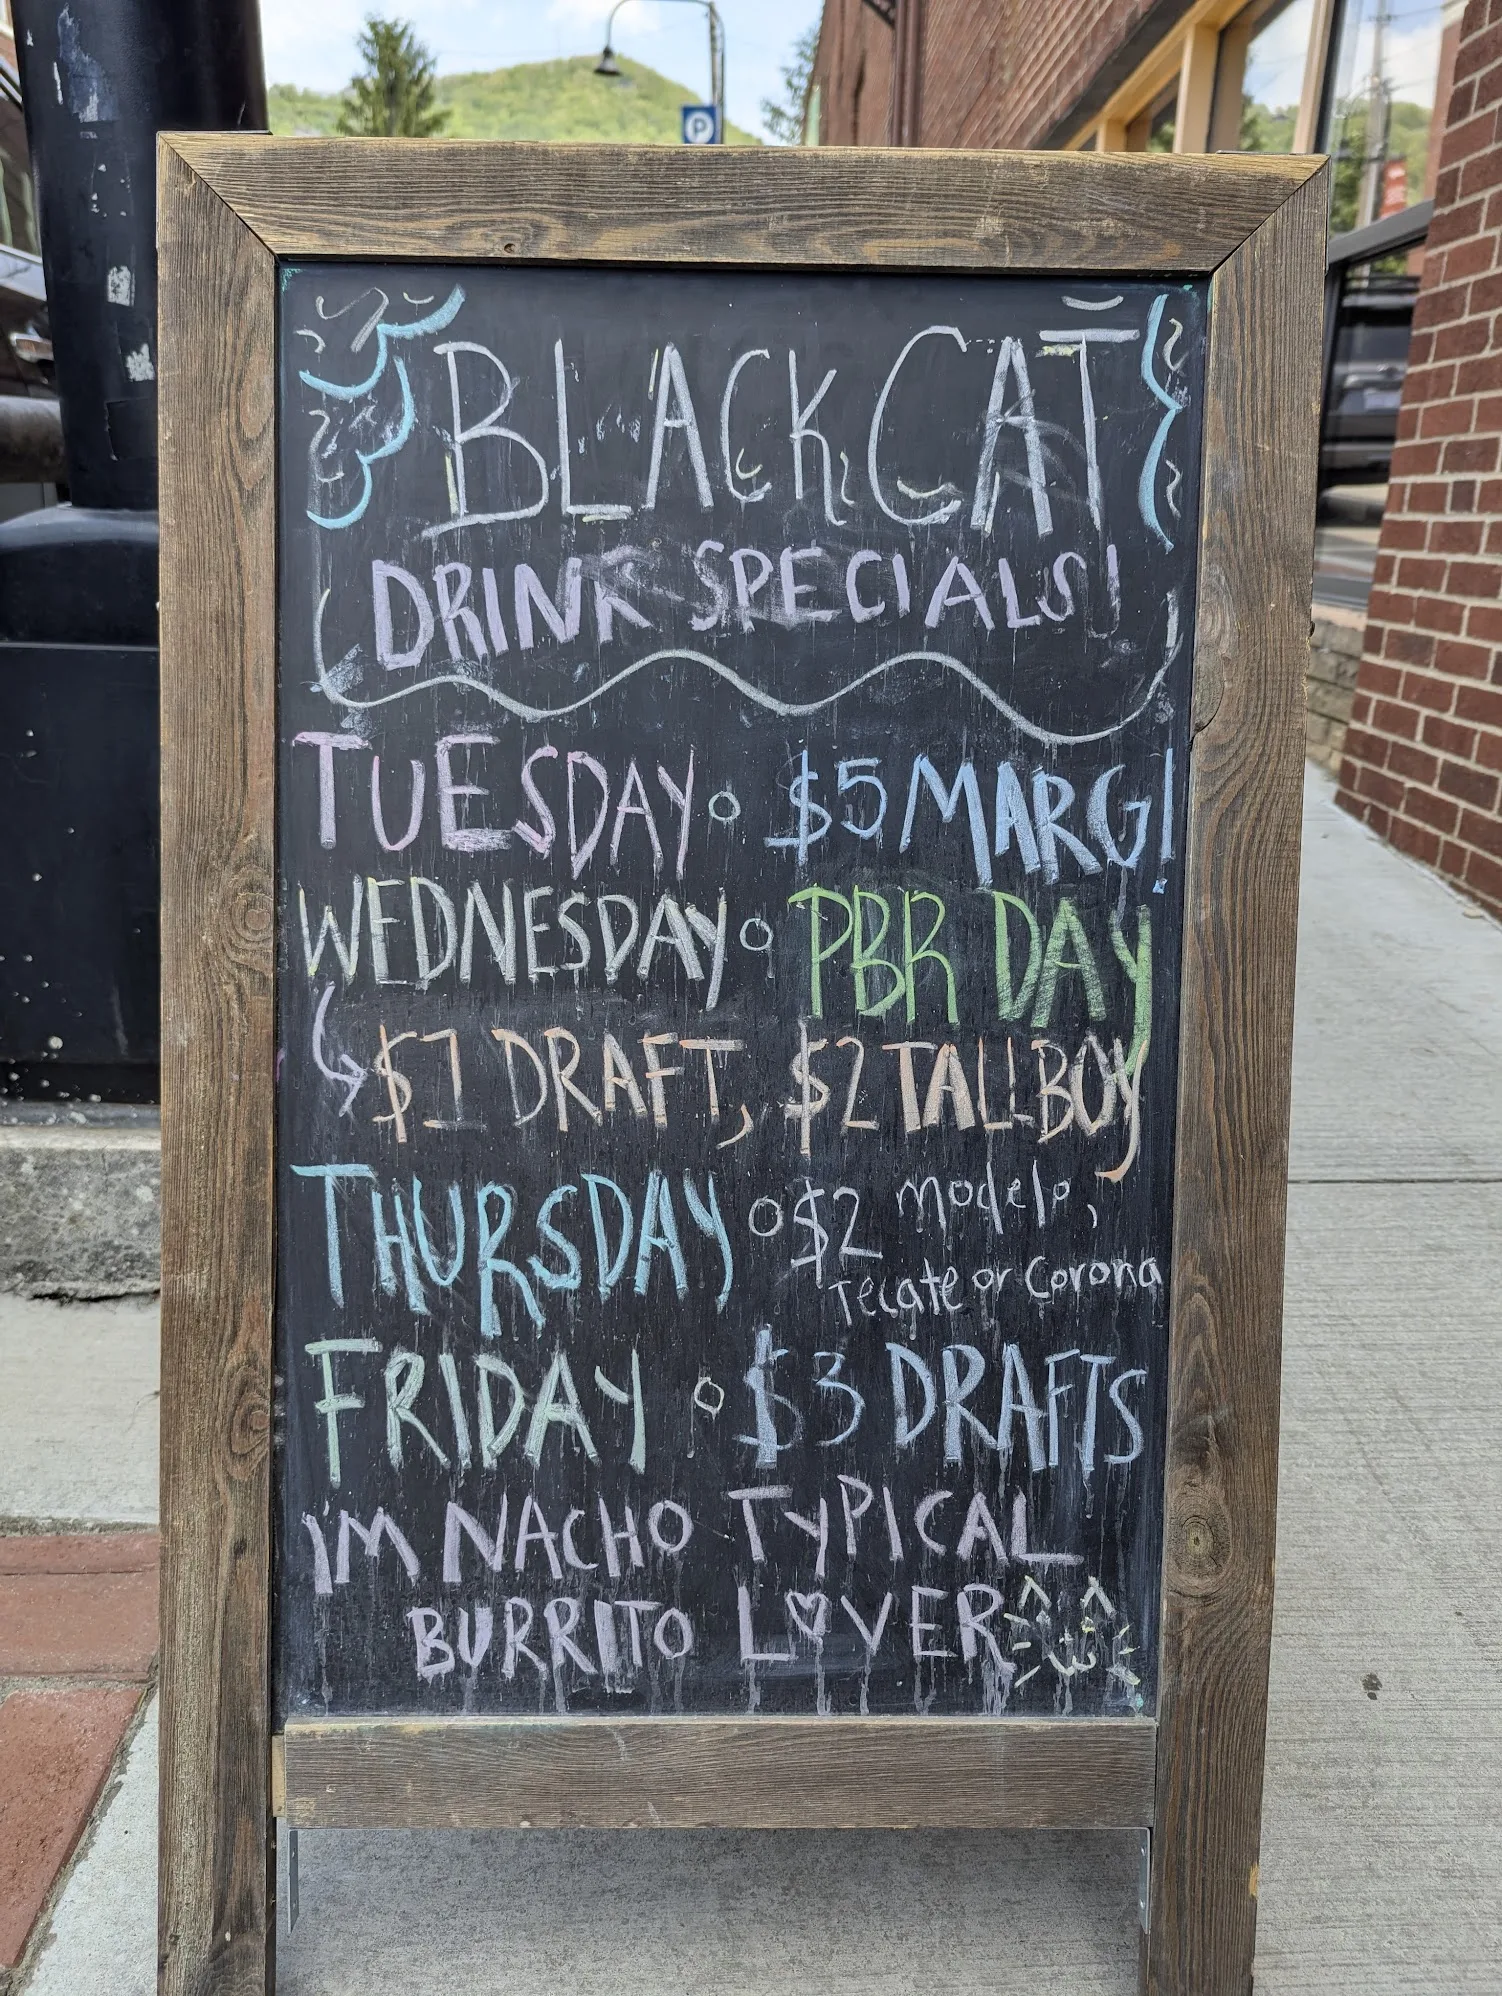 P
BLACK CAT
DRINK SPECIALS!
TUESDAY o $5 MARG!
WEDNESDAY o PBR DAY
$1 DRAFT, $2 TALLBOY
THURSDAY o $2 modelo,
Tecate or Corona
FRIDAY o $3 DRAFTS
I'M NACHO TYPICAL
BURRITO LOVER